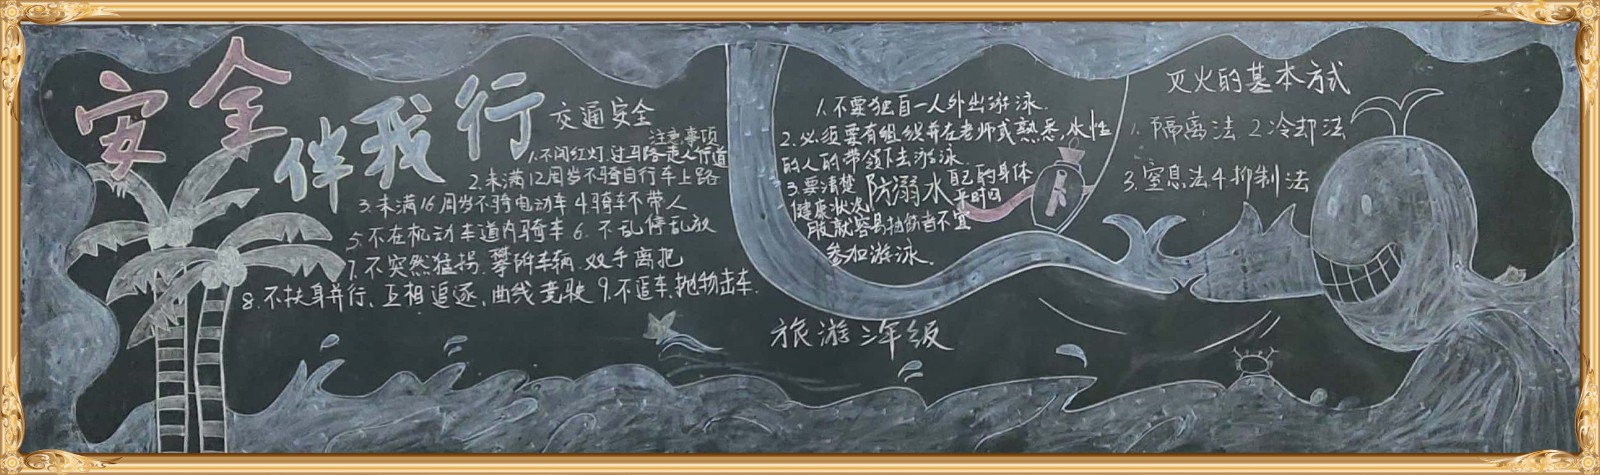 安全
伴我行
交通安全
注意事项
1.不闯红灯.过马路走人行道
2.未满12周岁不骑自行车上路
3.未满16周岁不骑电动车 4.骑车不带人
5.不在机动车道内骑车 6.不乱停乱放
7.不突然猛拐.攀附车辆.双手离把
8.不扶身并行、互相追逐、曲线驾驶 9.不追车.抛物击车.
1.不要独自一人外出游泳.
2.必须要有组织并在老师或熟悉水性
的人的带领下去游泳.
3.要清楚自己的身体
健康状况,平时四
肢就容易抽筋者不宜
参加游泳.
防溺水
旅游三年级
灭火的基本方式
1.隔离法 2.冷却法
3.窒息法 4.抑制法